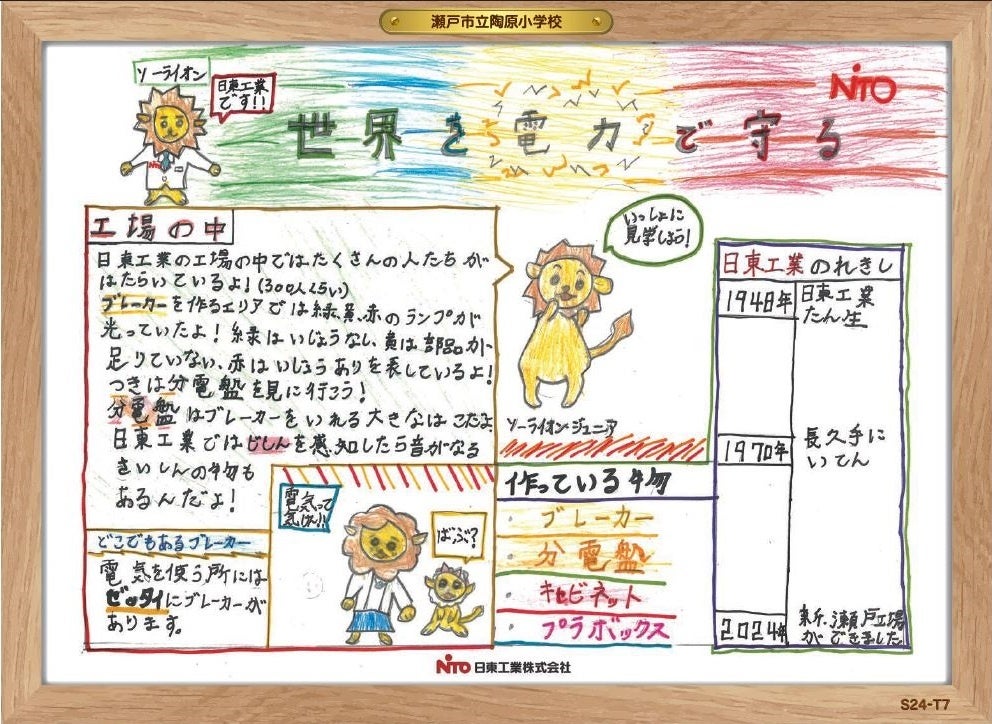 瀬戸市立陶原小学校
ソーライオン
日東工業
です!!
NiTO
世界を電力で守る
工場の中
日東工業の工場の中ではたくさんの人たちが
はたらいているよ!(300人くらい)
ブレーカーを作るエリアでは緑、黄、赤のランプが
光っていたよ!緑はいじょうなし、黄は部品が
足りていない、赤はいじょうありを表しているよ!
つぎは分電盤を見に行こう!
分電盤はブレーカーをいれる大きなはこだよ
日東工業ではじしんを感知したら音がなる
さいしんの物も
あるんだよ!
どこでもあるブレーカー
電気を使う所には
ゼッタイにブレーカーが
あります。
電気って
ばぶ?
いっしょに
見学しよう!
ソーライオンジュニア
作っている物
・ブレーカー
・分電盤
・キャビネット
・プラボックス
日東工業のれきし
1948年 日東工業
たん生
1970年 長久手に
いてん
2024年 新瀬戸工場
ができました
NiTO 日東工業株式会社
S24-T7